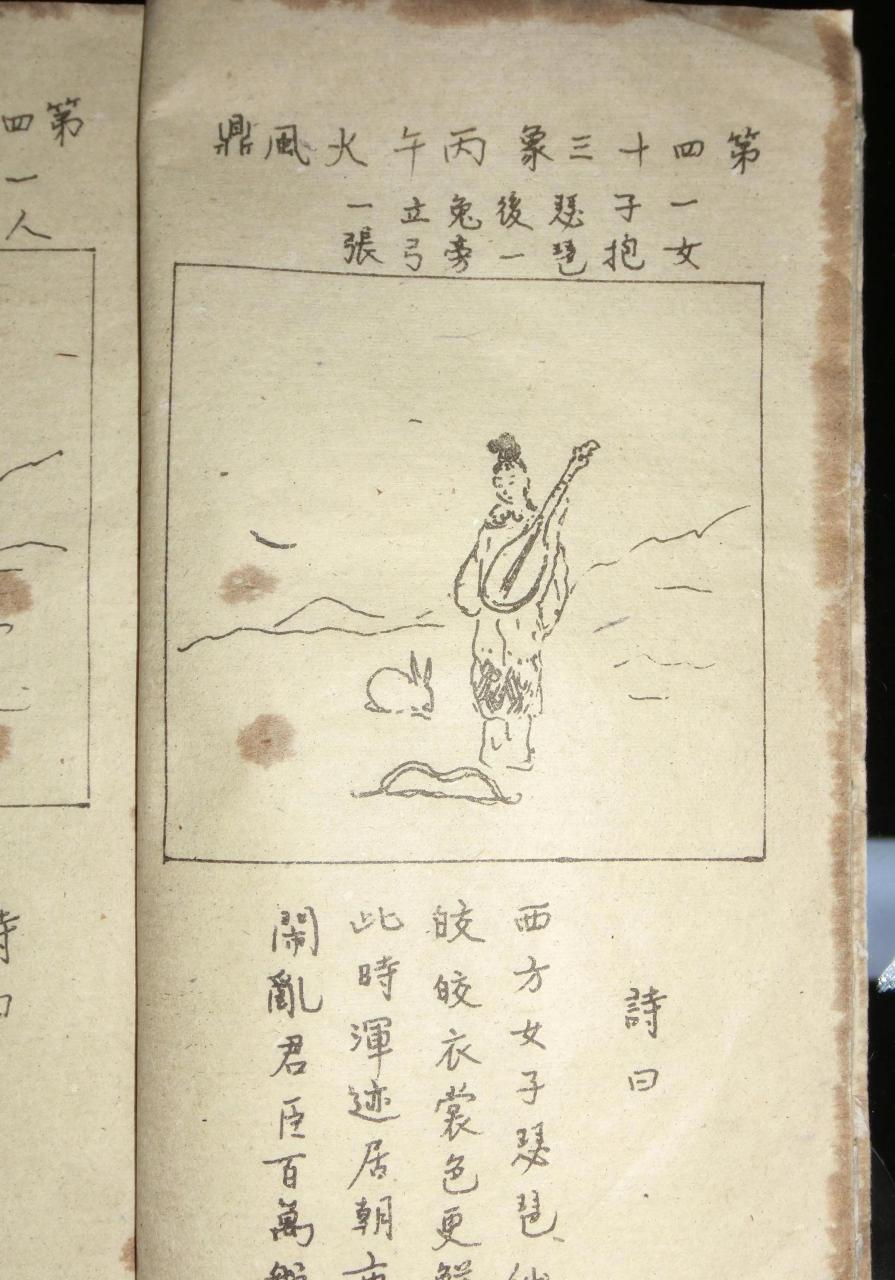 第四十三象丙午火風鼎
一女子抱瑟琶後一兔旁立弓一張
詩曰
西方女子瑟琶
皎皎衣裳色更
此時渾迹居朝
鬧亂君臣百萬
第四
一人